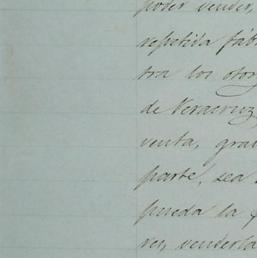 poder vender,
repetida fáb
tra los otorg
de Veracruz
venta, gra
parte, sea
pueda la
res, venderla